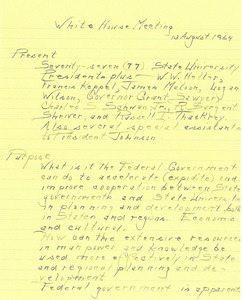 White House Meeting
13 August 1964
Present
Seventy-seven (77) State University
Presidents plus - W.W. Heller,
Francis Keppel, James Watson, Logan
Wilson, Governor Grant Sawyer,
Charles S. Schwan Jr., R. Sargent
Shriver, and Russell I. Thackrey.
Also several special assistants
to President Johnson
Purpose
What is it the Federal Government
can do to accelerate (expidite) and
improve cooperation between State
governments and State Universities
in planning and development both
in States and regions. Economic
and cultural.
How can the extensive resources
in manpower and knowledge be
used more effectively in State
and regional planning and de-
velopment
Federal government is apparent